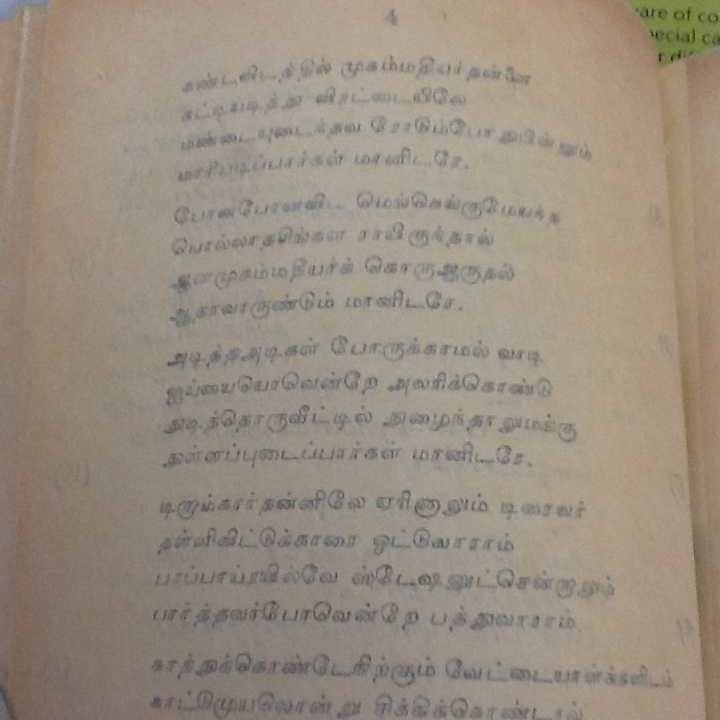 4
are of co
pecial ca
r dif
கண்டவிடத்தில் முகம்மதியர்தன்னை
கட்டியடித்து விரட்டையிலே
மண்டையுடைந்தவ ரோடும்போ துபின்னும்
மாரியடிப்பார்கள் மானிடரே.
போனபோனவிட மெங்கெங்குமேயந்த
பொல்லாதசிங்கள ராயிருந்தால்
ஆனமுகம்மதியர்க் கொருஆருதல்
ஆகாவாருண்டும் மானிடரே.
அடித்தஅடிகள் போருக்காமல் வாடி
ஐய்யையொவென்றே அலரிக்கொண்டு
அடித்தொருவீட்டில் நுழைந்தாலுமங்கு
தள்ளப்புடைப்பார்கள் மானிடரே.
டிராம்கார்தன்னிலே ஏரினாலும் டிரைவர்
தள்ளிவிட்டுக்காரை ஓட்டுவாராம்
பரப்பாய்ரயில்வே ஸ்டேஷனுட்சென்றாலும்
பார்த்தவர்போவென்றே பத்துவாராம்
காத்துக்கொண்டேநிற்கும் வேட்டையாள்க்களிடம்
காட்டுமுயலொன்று சிக்கிக்கொண்டால்